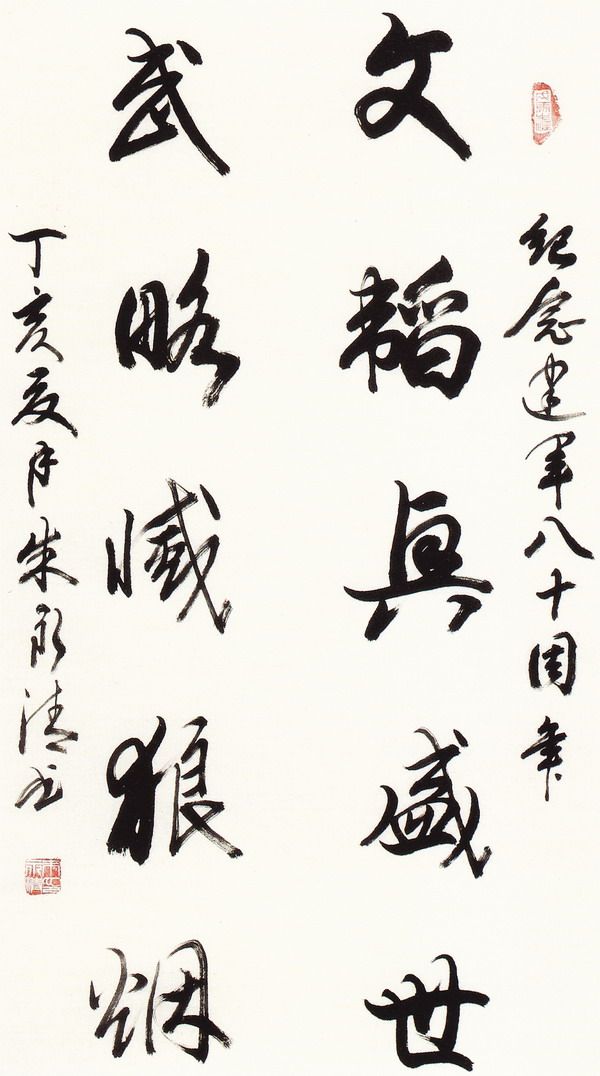 纪念建军八十周年
文韬真盛世
武略狼烟
丁亥夏月朱永清书